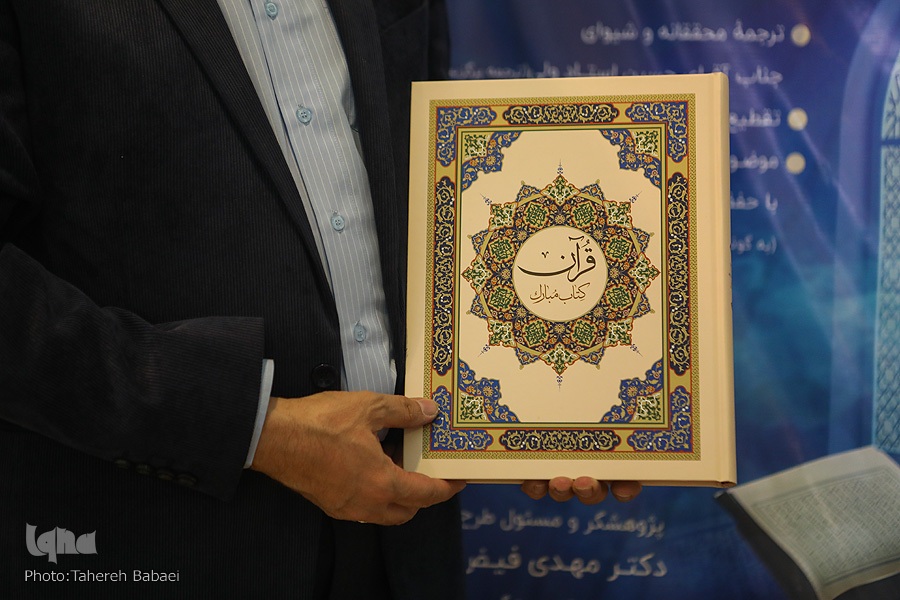 ترجمهٔ محققانه و شیوای
جناب
تقطیع
موضو
با حفظ
قرآن
کتاب مُبارک
پژوهشگر و مسئول طرح
دکتر مهدی فیض
iqna
Photo:Tahereh Babaei